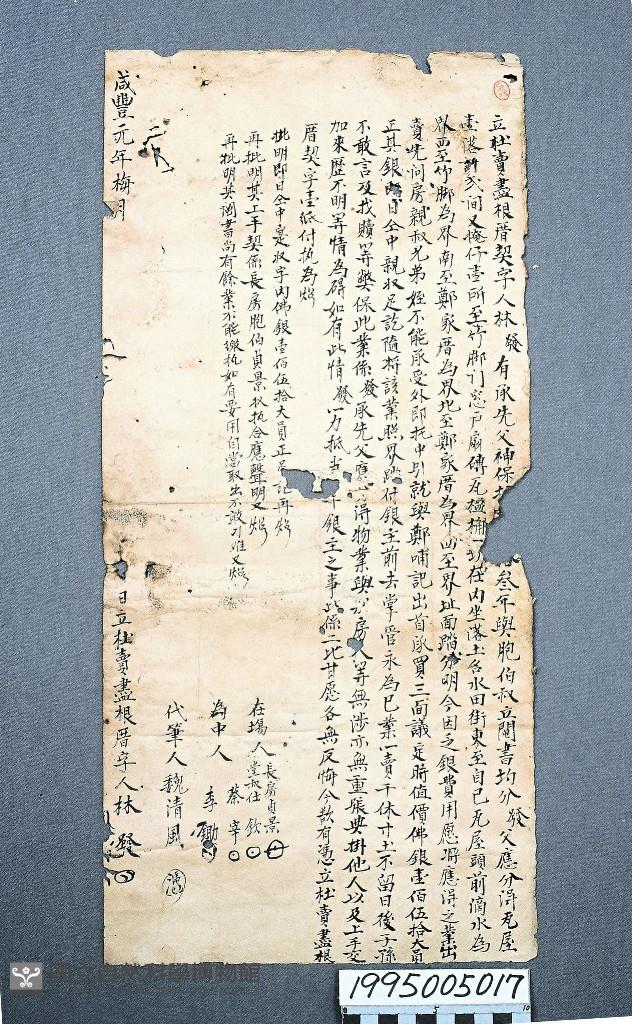 立杜賣盡根厝契字人林發有承先父神保 叁年與胞伯叔立鬮書均分發父應分得瓦屋
壹落 弍間又掩仔壹所至竹腳門窓戶扇磚瓦楹桷一切在內坐落土名水田街東至自己瓦屋頭前滴水為
界西至竹腳為界南至鄭家厝為界北至鄭家厝為界四至界址面踏分明今因乏銀費用愿將應得之業出
賣先問房親叔兄弟姪不能承受外即托中引就與鄭哺記出首承買三面議定時值價佛銀壹佰伍拾大員
正其銀即日仝中親收足訖隨將該業照界踏付銀主前去掌管永為己業一賣千休寸土不留日後子孫
不敢言及找贖等弊保此業係發承先父應 得物業與 房人等無涉亦無重張典掛他人以及上手交
加來歷不明等情為碍如有此情發一力抵 銀主之事此係二比甘愿各無反悔今欲有憑立杜賣盡根
厝契字壹紙付执為炤
批明即日仝中寔收字內佛銀壹佰伍拾大員正足訖再炤
再批明其上手契係長房胞伯貞景收执合應聲明又炤
再批明其鬮書尚有餘業不能繳执如有要用自當取出不敢刁难又炤
在塲人 長房貞景
堂叔 欽
為中人 蔡宰
李鋤
代筆人魏清風
咸豐元年梅月 日立杜賣盡根厝字人林發
1995005017